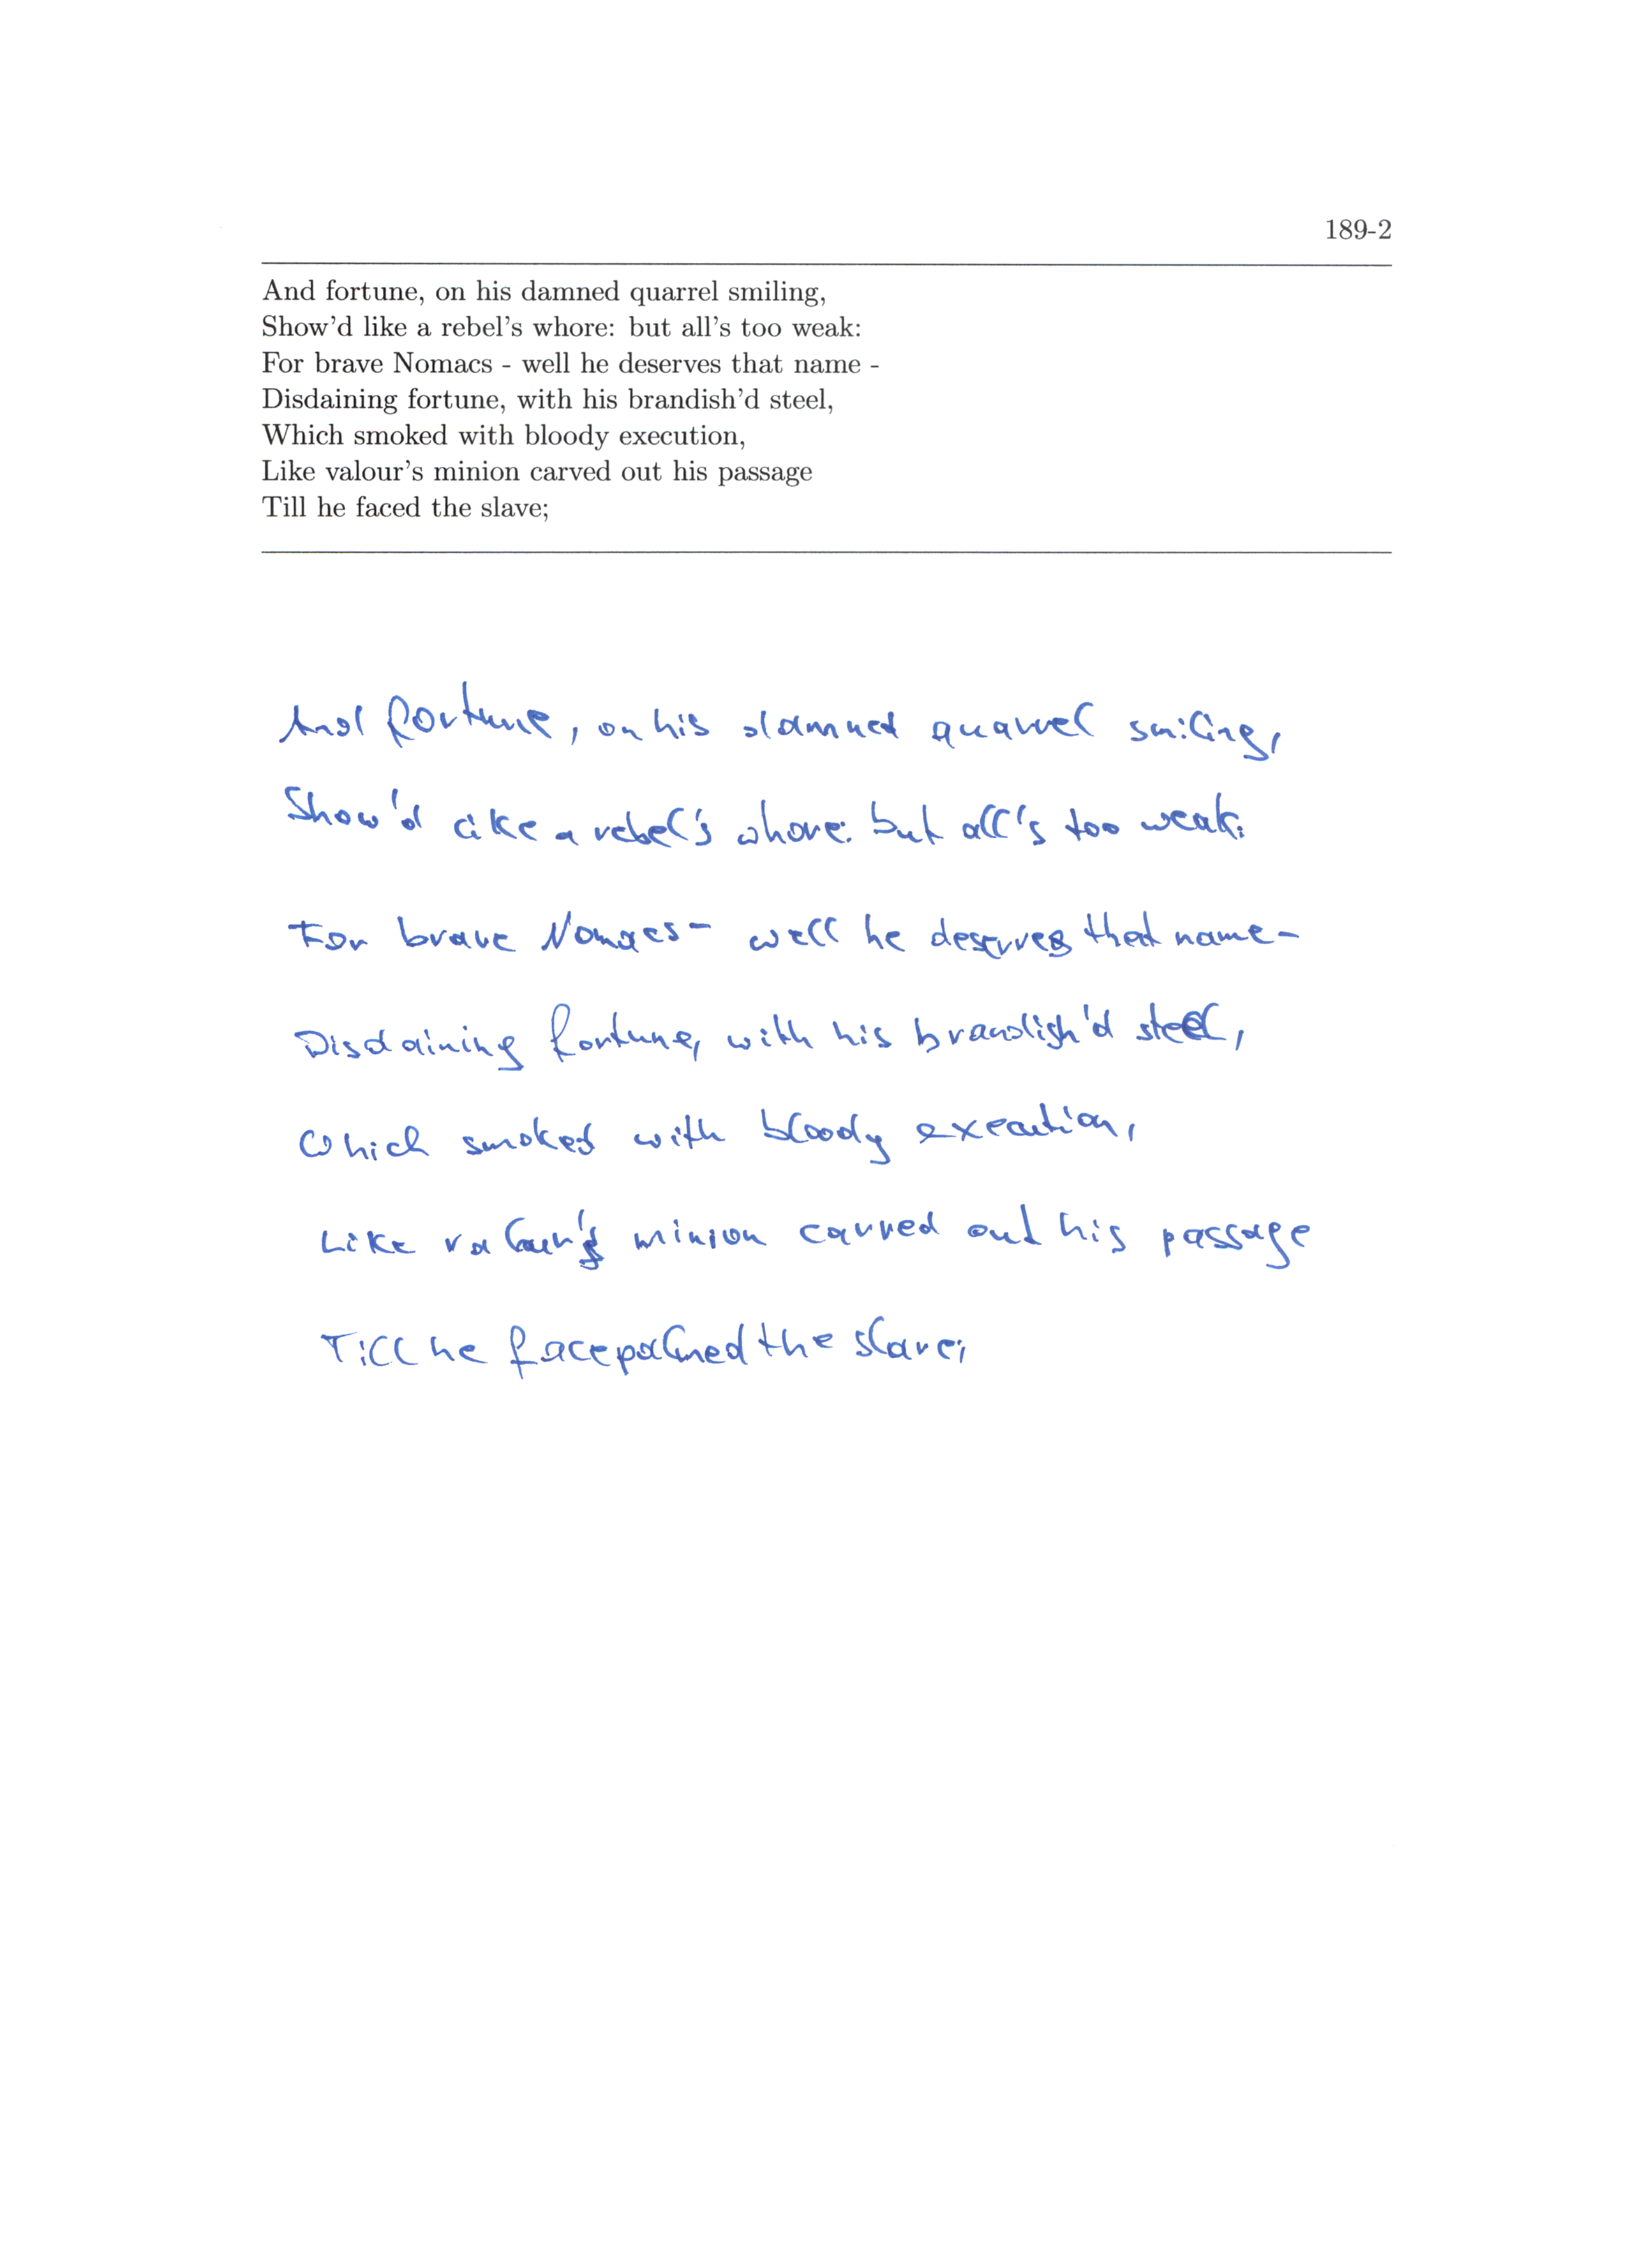 189-2
And fortune, on his damned quarrel smiling,
Show'd like a rebel's whore: but all's too weak:
For brave Nomacs - well he deserves that name -
Disdaining fortune, with his brandish'd steel,
Which smoked with bloody execution,
Like valour's minion carved out his passage
Till he faced the slave;
And fortune, on his damned quarrel smiling,
Show'd like a rebel's whore: but all's too weak:
For brave Nomacs - well he deserves that name -
Disdaining fortune, with his brandish'd steel,
Which smoked with bloody execution,
Like valour's minion carved out his passage
Till he facepalmed the slave;